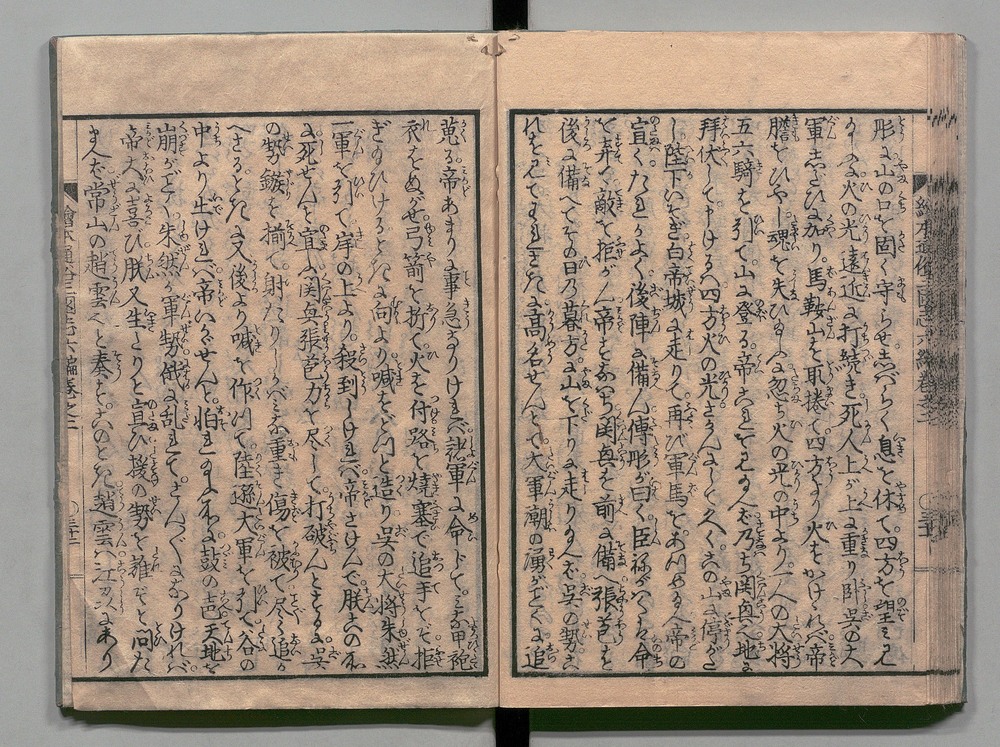 形に山の口を固く守らせしバらく息を休て四方を望ミ見
るに火の光遠近に打続き死人上が上に重り卧呉の大
軍したひ加り馬鞍山を取捲て四方より火をかけゝれバ帝
膽をひやし魂を失ひ玉ふ忽ち火の光の中より一人の大将
五六騎を引て山に登る帝これを見玉へバ乃ち関興なり地に
拝伏して申けるハ四方火の光さかんにして久しく此山に停がた
し陛下いそぎ白帝城に走りて再び軍馬をあつめ玉へ帝の
宣くたれかよく後陣に備ん傅彤が曰く臣祢がハくハ命
を弃て敵を拒がん帝すなハち関興を前に備へ張苞を
後に備へてその日の暮方に山を下りに走り玉へバ呉の勢これ
を見てわれさきに高名せんとて大軍潮の湧がごとくに追
蒐る帝あまりに事急なりけれバ諸軍に命じてミな甲袍
衣をぬがせ弓箭を折て火を付路を焼塞で追手をこそ拒
ぎ玉ひけるときに向より喊をどつと造り呉の大将朱然
一軍を引て岸の上より殺到しけれバ帝さけんで朕この処
に死せんと宣ふ関興張苞力を尽して打破んとするに呉
の勢鏃を揃て射たりしかバミな重き傷を被て尽く追か
へさるときに又後より喊を作つて陸孫大軍を引て谷の
中より出けれバ帝いかゞせんと怕れ玉ふ処に鼓の声天地を
崩がごとく朱然が軍勢俄に乱れてさんゞゝになりけれバ
帝大に喜び朕又生たりと宣ひ援の勢を誰ぞと問た
まへバ常山の趙雲なりと奏すこのとき趙雲ハ江州にあり
繪本通俗三國志六編巻之三
繪本通俗三國志六編巻之三